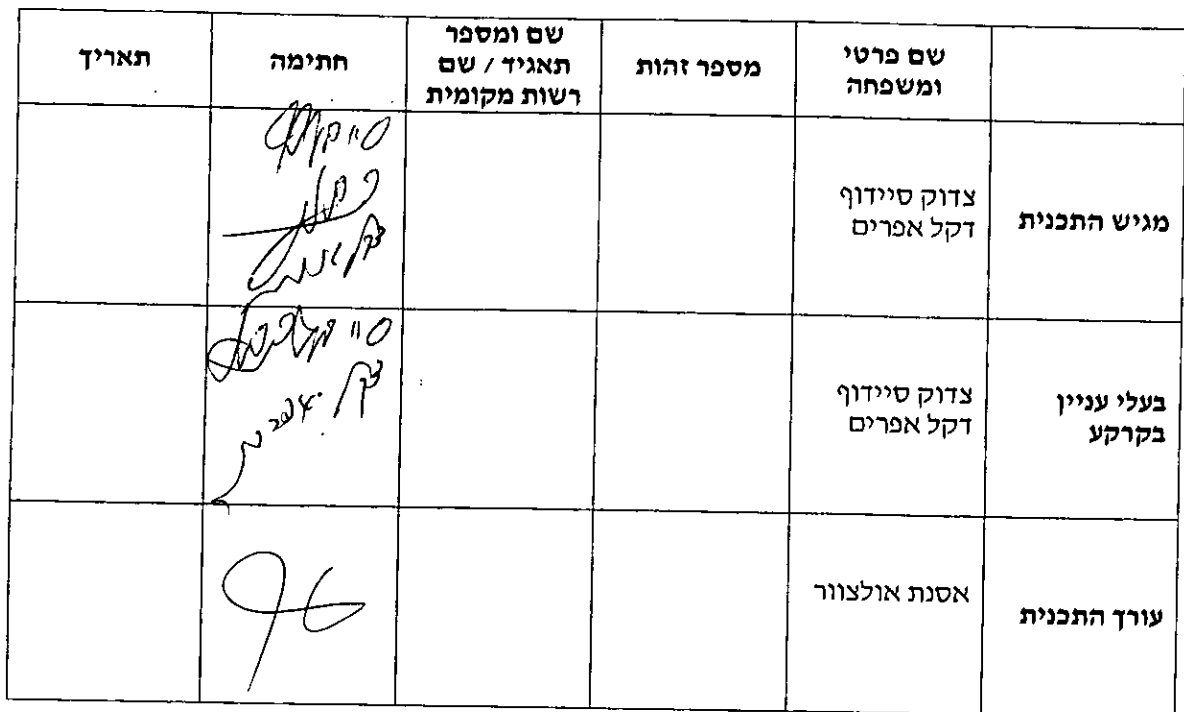 שם פרטי ומשפחה
מספר זהות
שם ומספר תאגיד / שם רשות מקומית
חתימה
תאריך
מגיש התכנית
צדוק סיידוף
דקל אפרים
בעלי עניין בקרקע
צדוק סיידוף
דקל אפרים
עורך התכנית
אסנת אולצוור